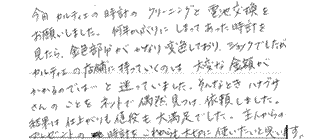 今回 カルティエの時計の クリーニングと 電池交換を
お願いしました。何年かぶりに しまってあった時計を
見たら、金色部分が かなり 変色しており、ショックでしたが
カルティエの店舗に 持っていくのは 大変な 金額が
かかるのでは… と 迷っていました。そんなとき ハナブサ
さんの ことを ネットで 偶然 見つけ、依頼しました。
結果は 仕上がりも 値段も 大満足でした。主人からの
プレゼントの 時計を これからも 大切に 使いたいと 思います。